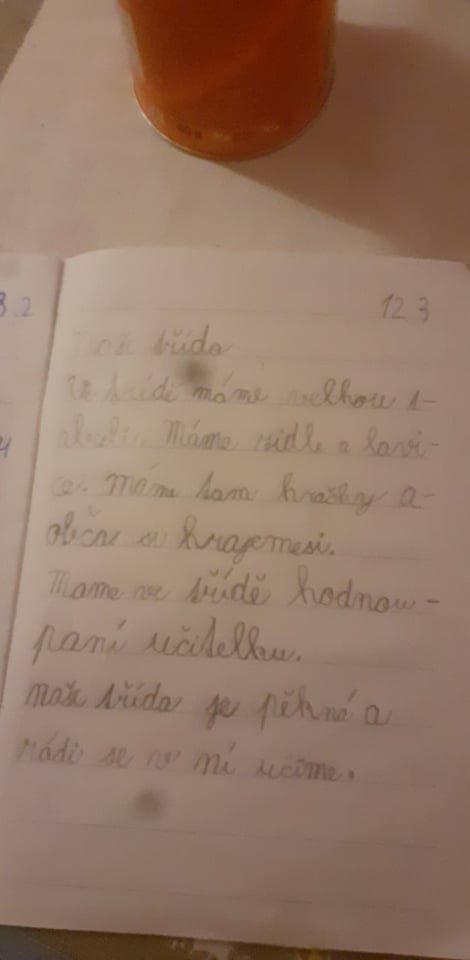 3.2
12 3
Naše třída
Ve třídě máme velkou t-
abuli. Máme židle a lavi-
ce. Máme tam hračky a-
občas si hrajemesi.
Mame ve třídě hodnou-
paní učitelku.
naše třída je pěkná a
rádi se v ní učíme.